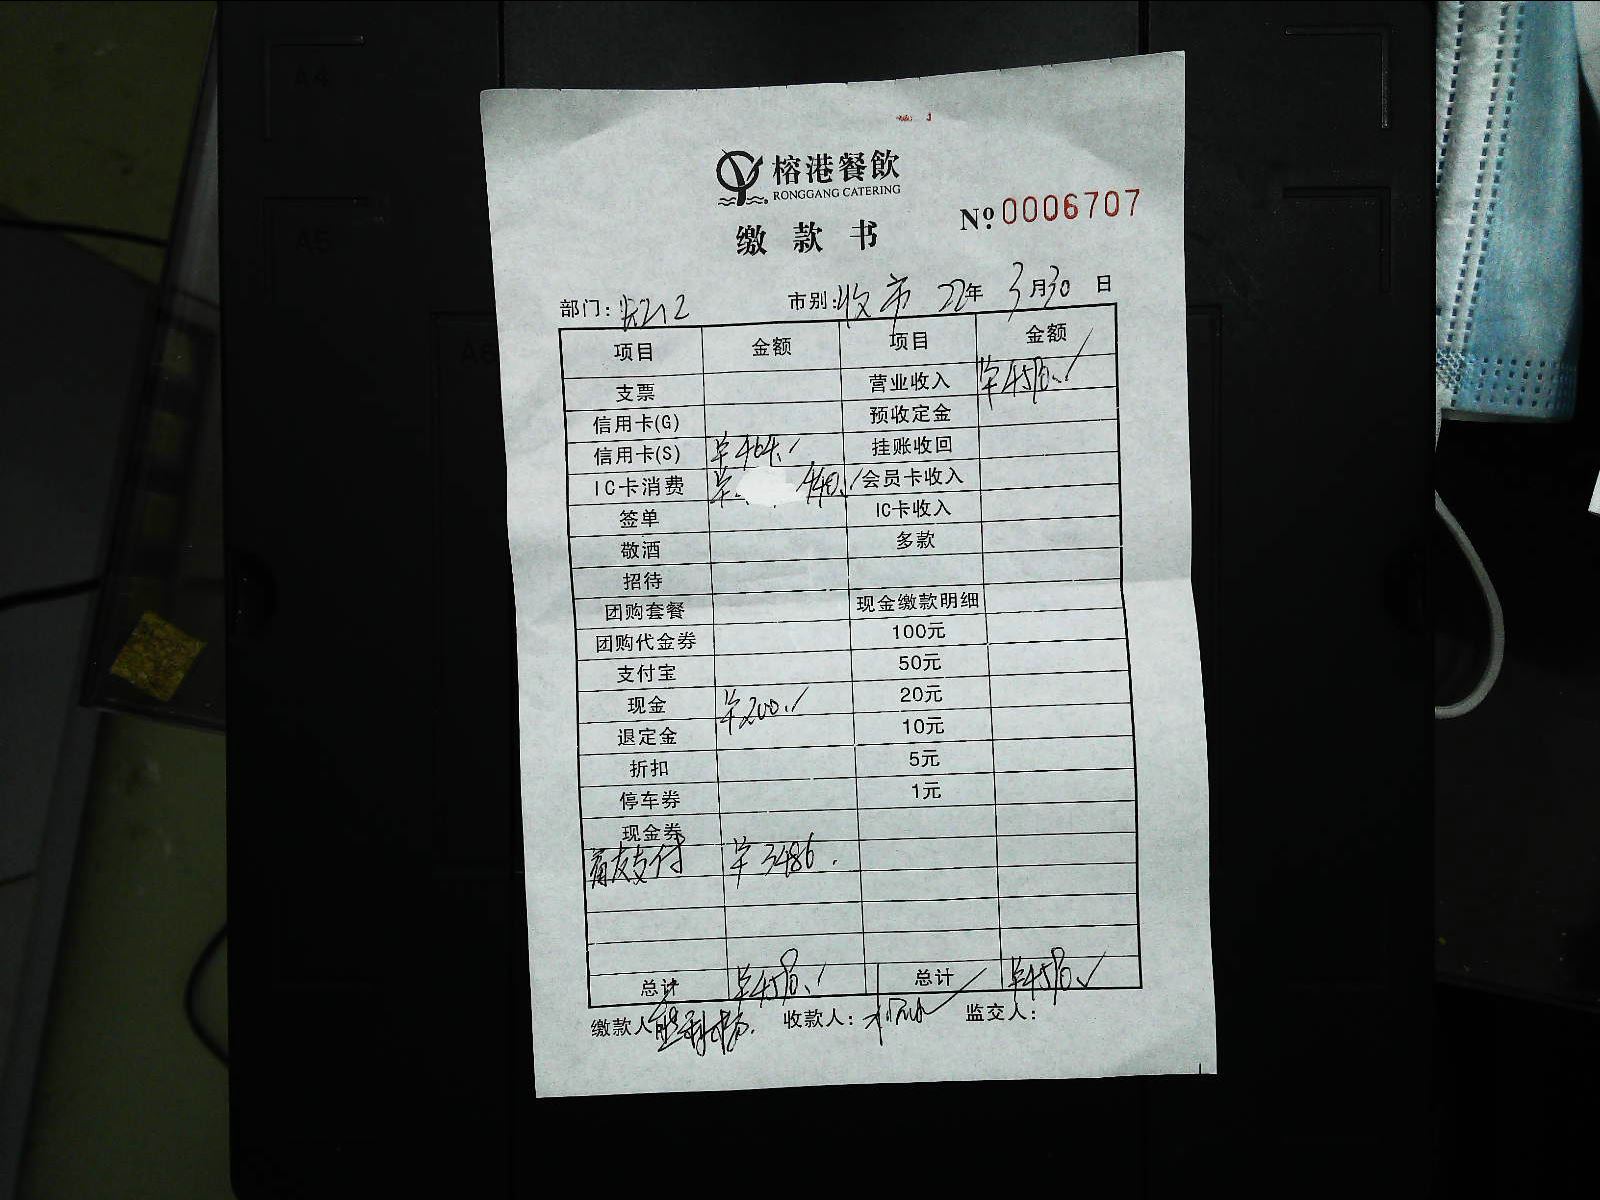 A4
A5
A6
榕港餐飲
RONGGANG CATERING
缴款书
Nº 0006707
部门: 市别: 收市 22年 3月30日
项目 金额 项目 金额
支票 营业收入 ¥4590.
信用卡(G) 预收定金
信用卡(S) ¥464. 挂账收回
IC卡消费 ¥ 440. 会员卡收入
签单 IC卡收入
敬酒 多款
招待
团购套餐 现金缴款明细
团购代金券 100元
支付宝 50元
现金 ¥200. 20元
退定金 10元
折扣 5元
停车券 1元
现金券
富友支付 ¥3486.
总计 ¥4590. 总计 ¥4590.
缴款人 收款人: 监交人: